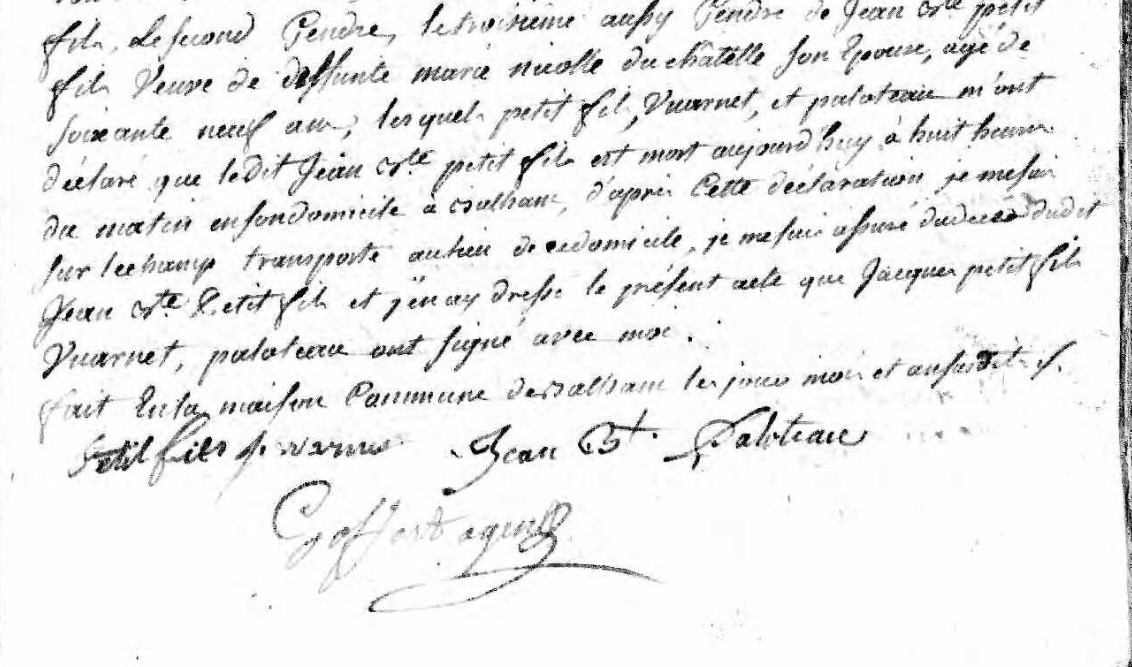 fils, Le second Gendre, le troisième aussy Gendre de Jean Bte petit
fils Veuve de deffunte marie nicolle duchâtelle son Epouse, agé de
soixante neuf ans, lesquels petit fils, Vuarnet, et paloteau m'ont
déclaré que ledit Jean Bte petit fils est mort aujourd'huy à huit heures
du matin en son domicile à d'après Cette déclaration je me suis
sur lechamp transporté au lieu de ce domicile, je me suis assuré du décés dudit
Jean Bte Petit fils et j'en ay dressé le présent acte que Jacques petit fils
Vuarnet, paloteau ont signé avec moi.
fait En la maison Commune de les jours mois et an susdits
petit fils Jean Bt. Paloteau
Goffart agent